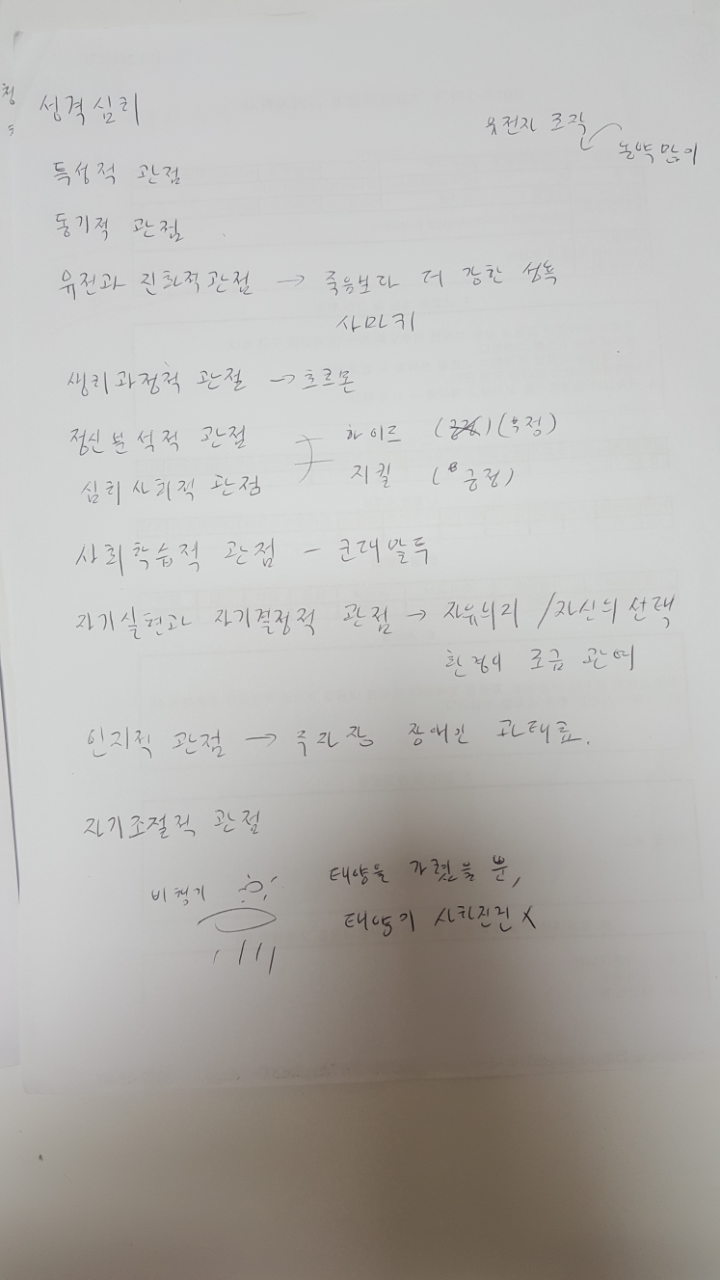 성격심리
유전자 조작
농약 많이
특성적 관점
동기적 관점
유전과 진화적관점 → 죽음보다 더 강한 성욕
사마귀
생리과정적 관점 → 호르몬
정신분석적 관점
하이드 ( )(부정)
심리사회적 관점
지킬 ( 긍정)
사회학습적 관점 - 군대말투
자기실현과 자기결정적 관점 → 자유의지 / 자신의 선택
환경이 조금 관여
인지적 관점 → 주차장 장애인 과태료.
자기조절적 관점
비행기
태양을 가렸을 뿐,
태양이 사라진건 X